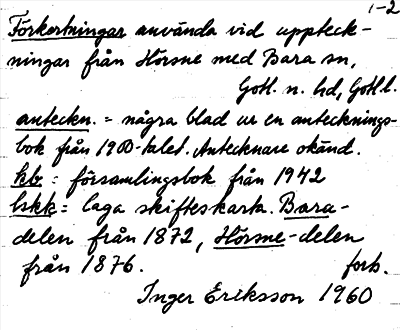 1-2
Förkortningar använda vid uppteck-
ningar från Hörsne med Bara sn,
Gotl. n. hd, Gotl l.
anteckn. = några blad ur en antecknings-
bok från 1900-talet. Antecknare okänd.
kb = församlingsbok från 1942
lskk = laga skifteskarta. Bara-
delen från 1872, Hörsne-delen
från 1876. forts.
Inger Eriksson 1960